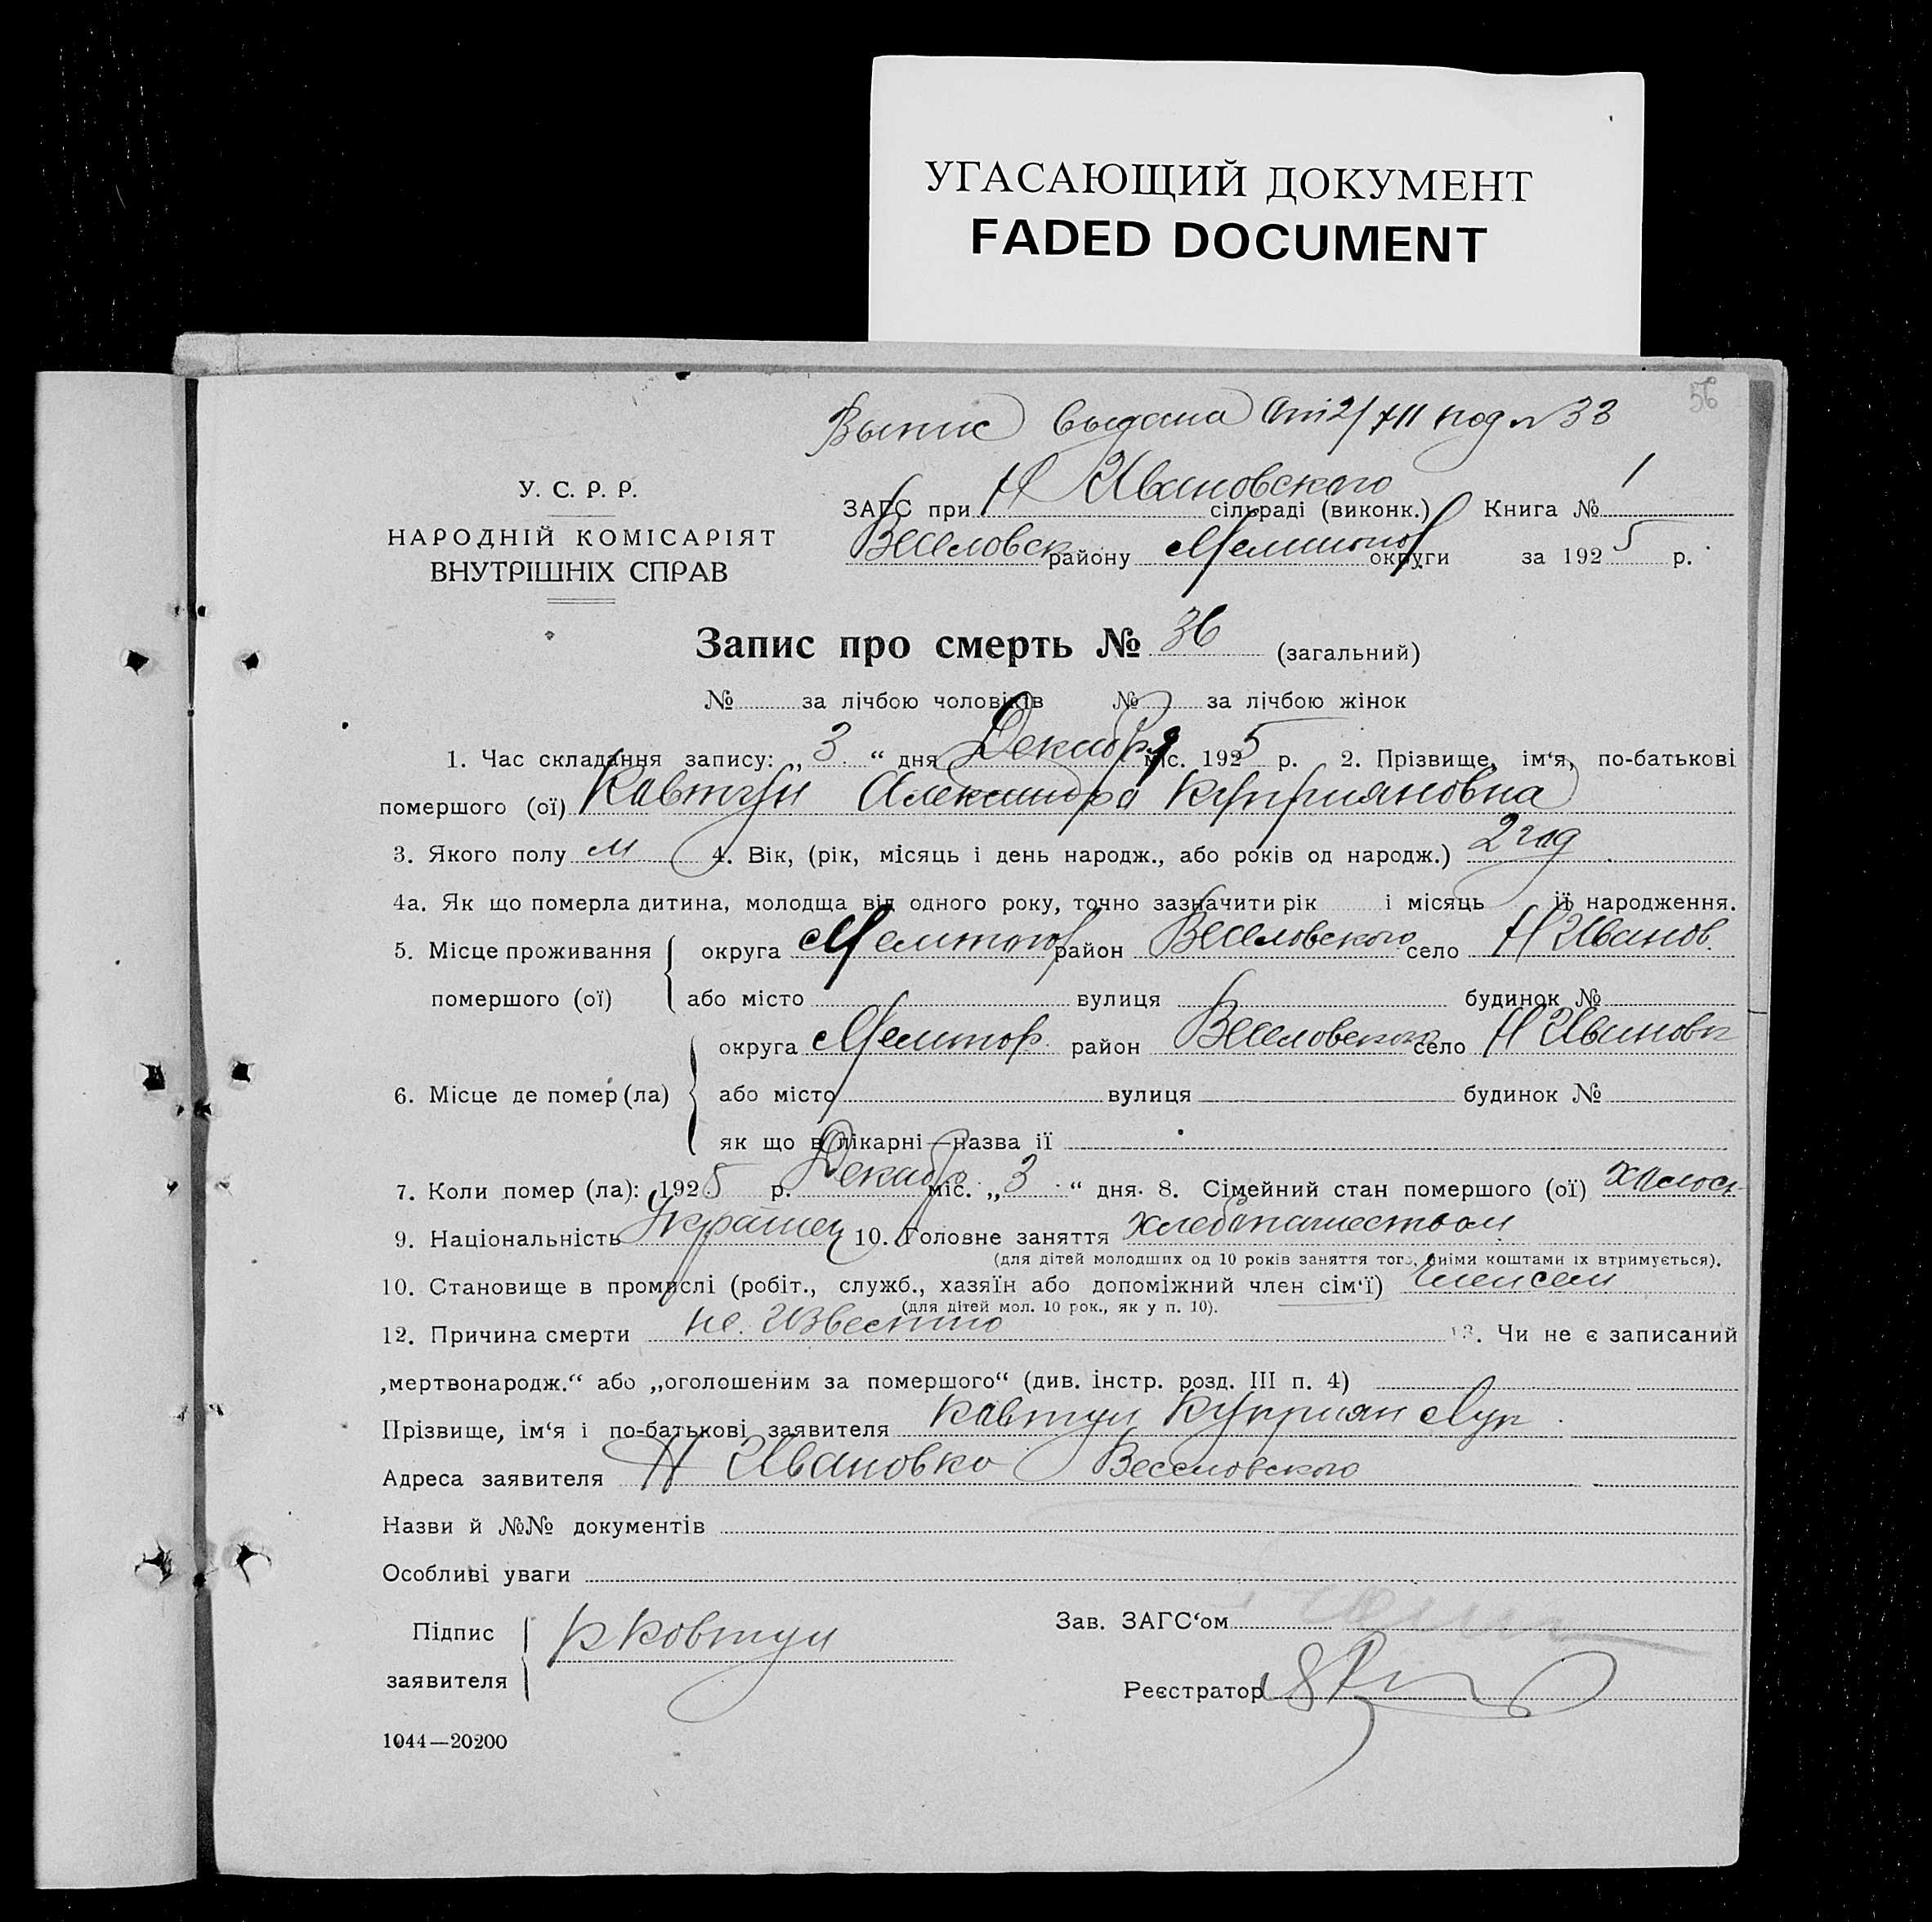 УГАСАЮЩИЙ ДОКУМЕНТ
FADED DOCUMENT
56
Выпис выдана 2/XII под № 33
У. С. Р. Р.
НАРОДНІЙ КОМІСАРІЯТ
ВНУТРІШНІХ СПРАВ
ЗАГС при Н Ивановского сільраді (виконк.) Книга № 1
Веселовск району Мелитоп округи за 1925 р.
Запис про смерть № 36 (загальний)
№ за лічбою чоловіків № за лічбою жінок
1. Час складання запису: „ 3 “ дня Декабря міс. 1925 р. 2. Прізвище, ім‘я, по-батькові
помершого (ої) Кавтун Александра Куприяновна
3. Якого полу м 4. Вік, (рік, місяць і день народж., або років од народж.) 2 год
4а. Як що померла дитина, молодща від одного року, точно зазначити рік і місяць її народження.
5. Місце проживання округа Мелитоп район Веселовского село Н Иванов.
помершого (ої) або місто вулиця будинок №
округа Мелитоп. район Веселовского село Н Ивановк
6. Місце де помер (ла) або місто вулиця будинок №
як що в лікарні—назва ії
7. Коли помер (ла): 1925 р. Декабр міс. „ 3 “ дня. 8. Сімейний стан помершого (ої) холост
9. Національність Украинец 10. Головне заняття хлебопашеством
(для дітей молодших од 10 років заняття того, чиїми коштами їх втримується).
10. Становище в промислі (робіт., служб., хазяїн або допоміжний член сім‘ї) член сем
(для дітей мол. 10 рок., як у п. 10).
12. Причина смерти не. известно 13. Чи не є записаний
„мертвонародж.“ або „оголошеним за помершого“ (див. інстр. розд. III п. 4)
Прізвище, ім‘я і по-батькові заявителя Кавтун Куприян Лук
Адреса заявителя Н Ивановка Веселовского
Назви й №№ документів
Особливі уваги
Підпис К Ковтун Зав. ЗАГС‘ом
заявителя Реєстратор
1044—20200